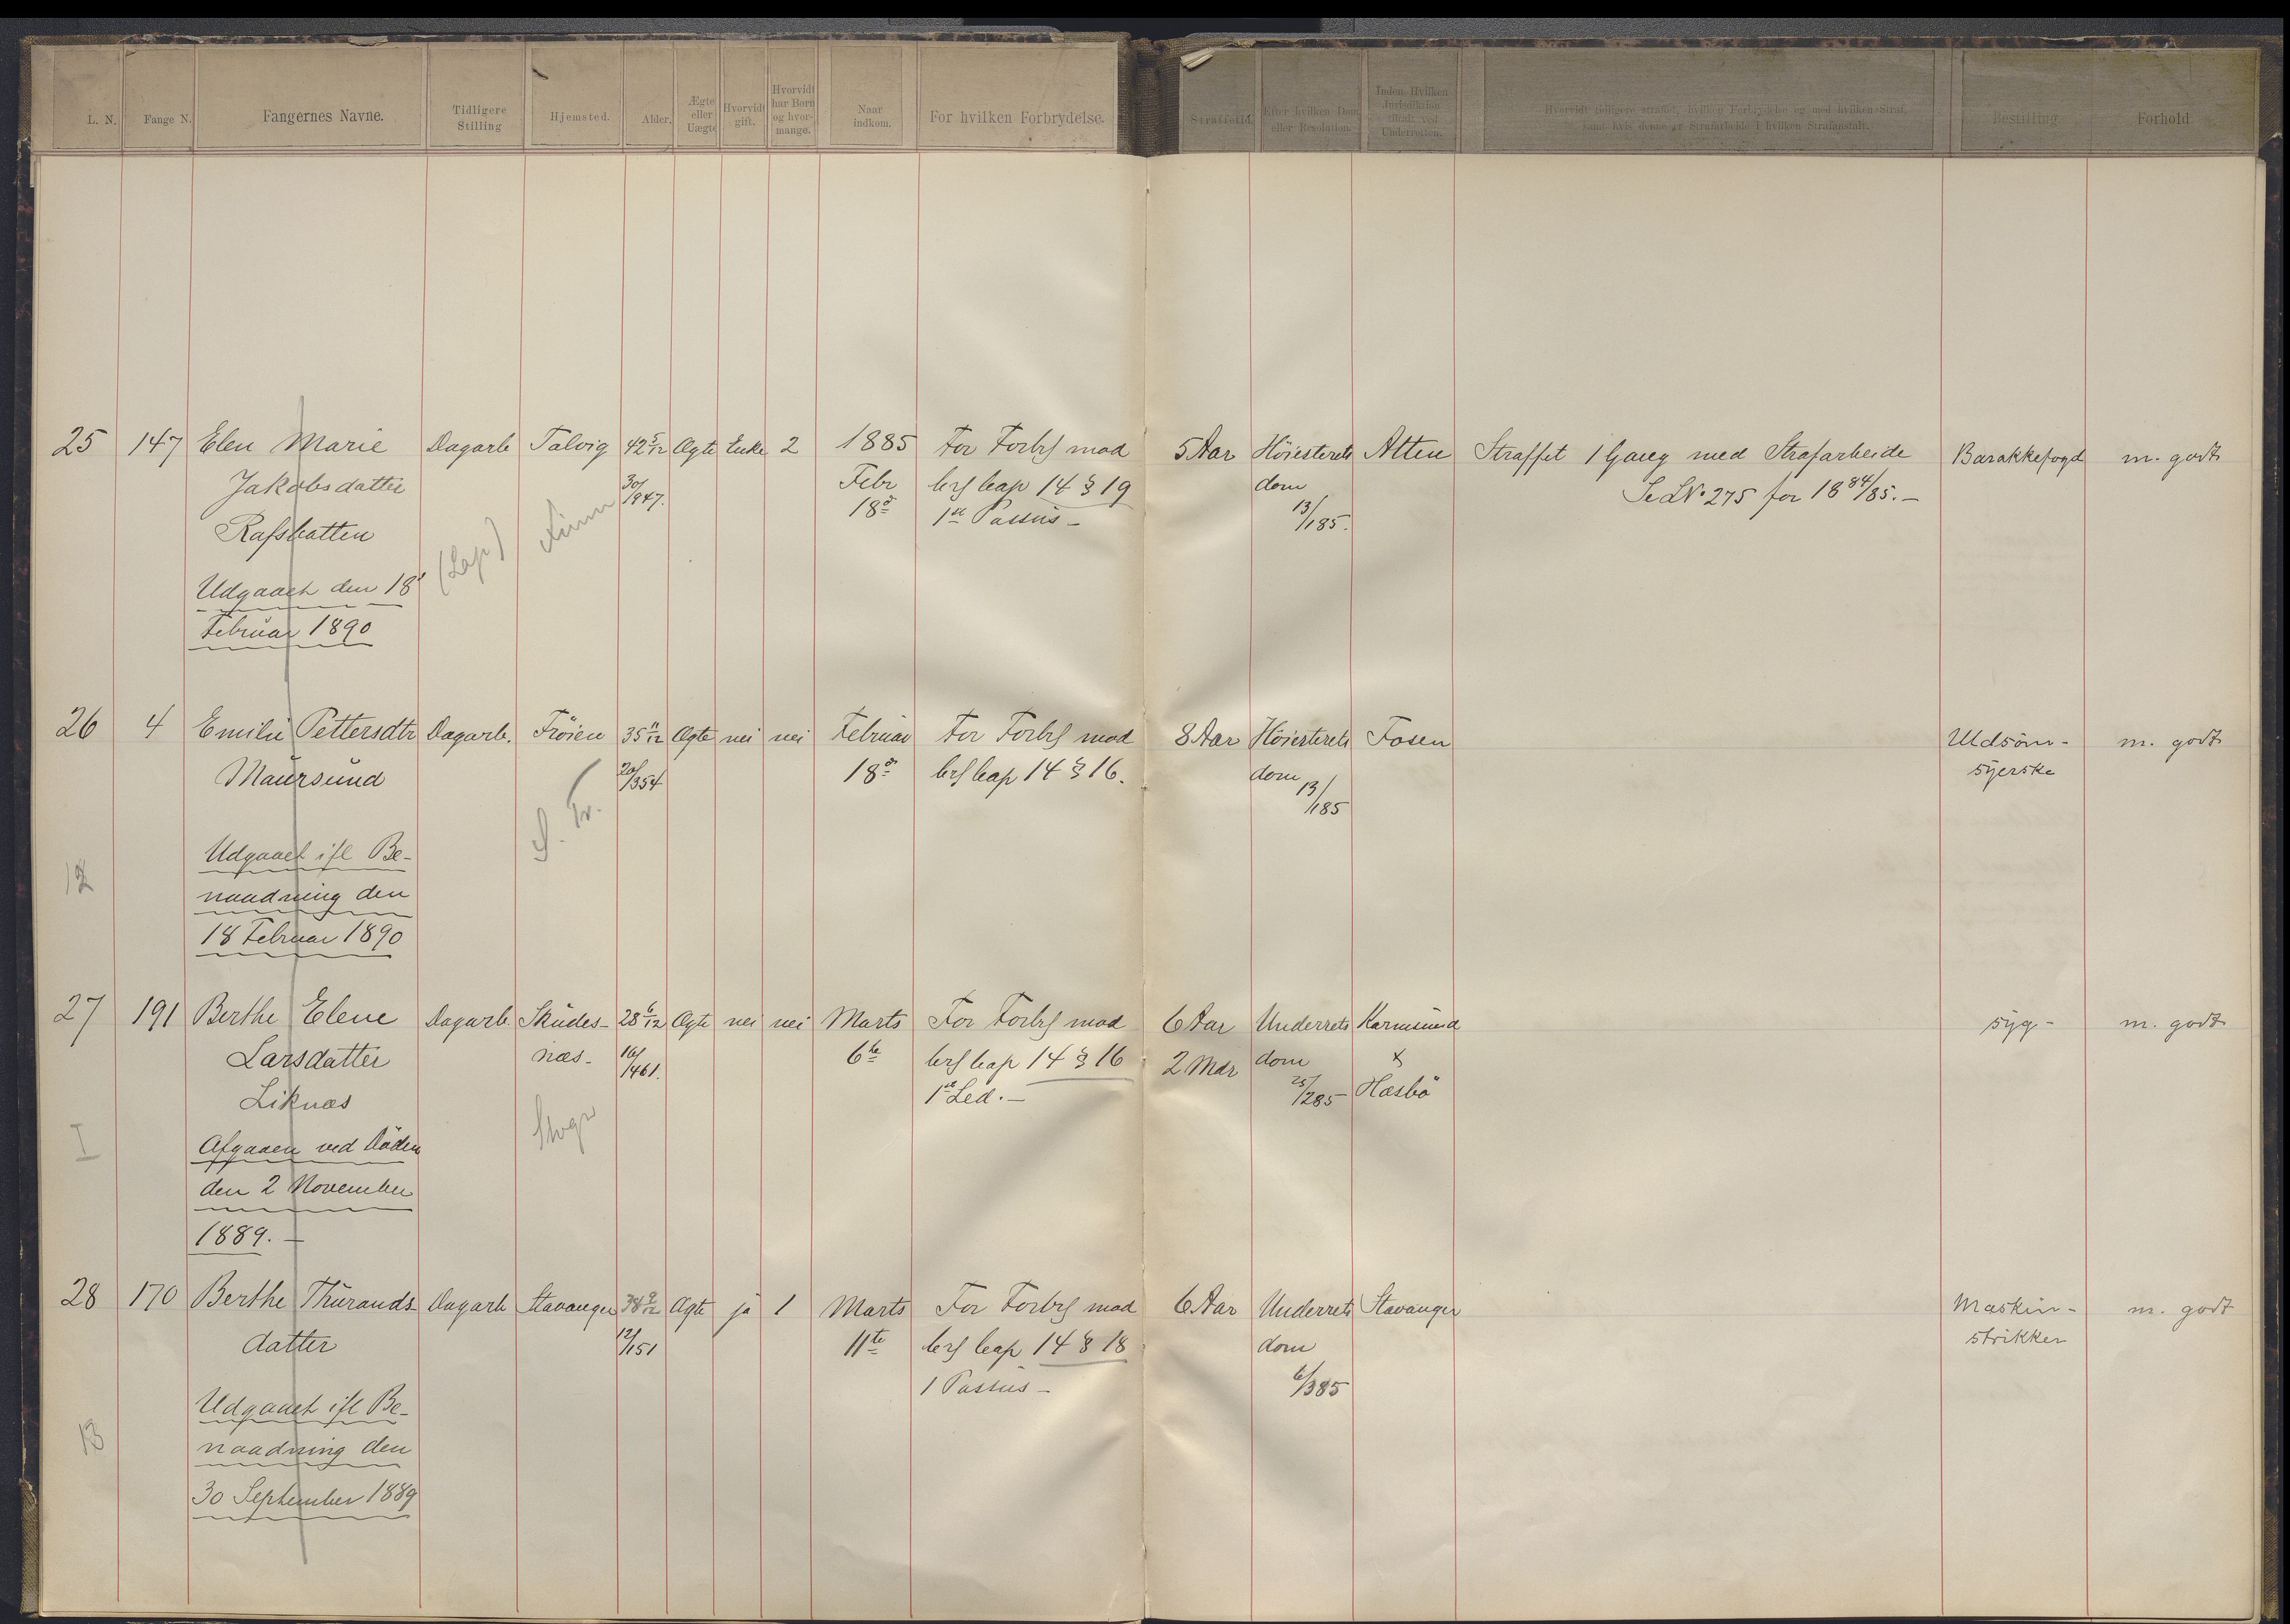 L. N. Fange N. Fangernes Navne. Tidligere Stilling Hjemsted. Alder. Ægte eller Uægte Hvorvidt gift. Hvorvidt har Børn og hvormange. Naar indkom. For hvilken Forbrydelse. Straffetid. Efter hvilken Dom eller Resolution. Inden Hvilken Jurisdiktion tiltalt ved Underretten. Hvorvidt tidligere straffet, hvilken Forbrydelse og med hvilken Straf, samt hvis denne er Strafarbeide i hvilken Strafanstalt. Bestilling Forhold
25 147 Elen Marie Dagarb Talvig 42 5/12 Ægte Enke 2 1885 For Forbr mod 5 Aar Høiesterets Alten Straffet 1 Gang med Strafarbeide Barakkefogd m. godt
Jakobsdatter 30/947. Febr Cap 14 § 19 dom Se LN° 275 for 18 84/85.-
Rafsbatten 18de 1ste Passus - 13/185.
(Lap)
Udgaaet den 18de
Februar 1890
26 4 Emilie Pettersdtr Dagarb. Frøien 35 11/12 Ægte nei nei Februar For Forbr mod 8 Aar Høiesterets Fosen Udsöm- m. godt
Maursund 20/354 18de Cap 14 § 16. dom 13/185 syerske
S. Tr.
Udgaaet ifl Be-
12 naadning den
18 Februar 1890
27 191 Berthe Elene Dagarb. Skudes- 28 6/12 Ægte nei nei Marts For Forbr mod 6 Aar Underrets Karmsund syg- m. godt
Larsdatter næs- 16/461. 6te Cap 14 § 16 2 Mdr dom &
Liknæs 1ste Led.- 25/285 Hæsbö
I Afgaaen ved Döden Stvgr
den 2 November
1889.-
28 170 Berthe Thurands- Dagarb Stavanger Ægte ja 1 Marts For Forbr mod 6 Aar Underrets Stavanger Maskin- m. godt
datter 12/151 11te Cap 14 § 18 dom strikker
1 Passus - 6/385
Udgaaet ifl Be-
13 naadning den
30 September 1889